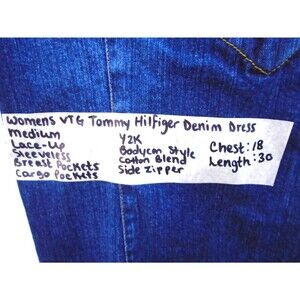 Womens VTG Tommy Hilfiger Denim Dress
Medium
Lace-Up
Sleeveless
Breast Pockets
Cargo Pockets
Y2K
Bodycon Style
Cotton Blend
Side Zipper
Chest: 18
Length: 30